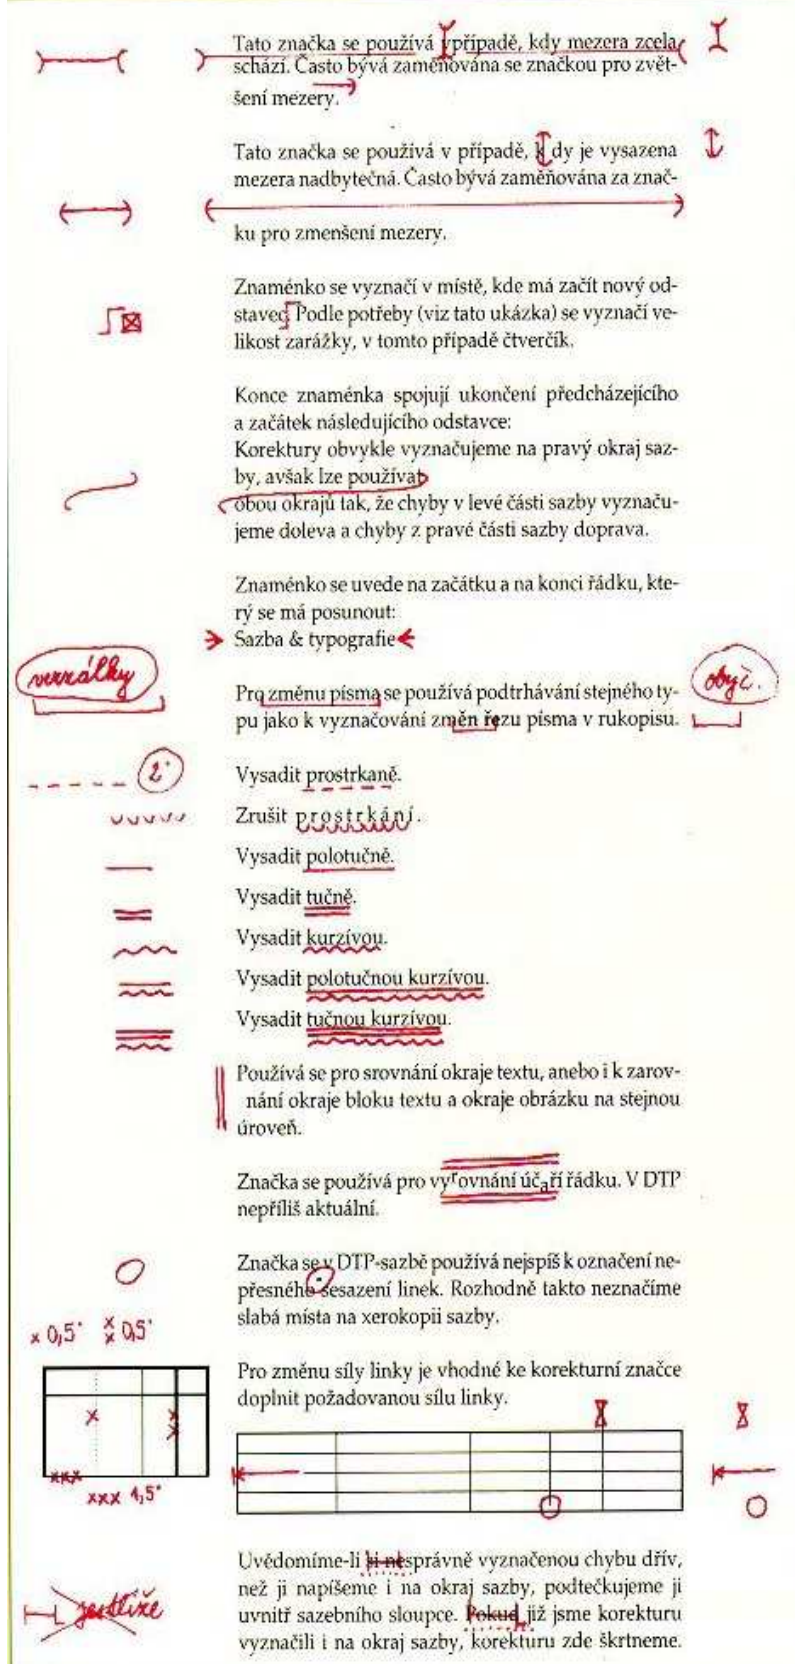 Tato značka se používá vpřípadě, kdy mezera zcela
schází. Často bývá zaměňována se značkou pro zvět-
šení mezery.
Tato značka se používá v případě, k dy je vysazena
mezera nadbytečná. Často bývá zaměňována za znač-
ku pro zmenšení mezery.
Znaménko se vyznačí v místě, kde má začít nový od-
stavec. Podle potřeby (viz tato ukázka) se vyznačí ve-
likost zarážky, v tomto případě čtverčík.
Konce znaménka spojují ukončení předcházejícího
a začátek následujícího odstavce:
Korektury obvykle vyznačujeme na pravý okraj saz-
by, avšak lze používat
obou okrajů tak, že chyby v levé části sazby vyznaču-
jeme doleva a chyby z pravé části sazby doprava.
Znaménko se uvede na začátku a na konci řádku, kte-
rý se má posunout:
Sazba & typografie
verzálky
obyč.
Pro změnu písma se používá podtrhávání stejného ty-
pu jako k vyznačování změn řezu písma v rukopisu.
2·
Vysadit prostrkaně.
Zrušit prostrkání.
Vysadit polotučně.
Vysadit tučně.
Vysadit kurzívou.
Vysadit polotučnou kurzívou.
Vysadit tučnou kurzívou.
Používá se pro srovnání okraje textu, anebo i k zarov-
nání okraje bloku textu a okraje obrázku na stejnou
úroveň.
Značka se používá pro vyrovnání účaří řádku. V DTP
nepříliš aktuální.
Značka se v DTP-sazbě používá nejspíš k označení ne-
přesného sesazení linek. Rozhodně takto neznačíme
slabá místa na xerokopii sazby.
x 0,5· x x 0,5·
Pro změnu síly linky je vhodné ke korekturní značce
doplnit požadovanou sílu linky.
xxx
xxx 1,5·
Uvědomíme-li si nesprávně vyznačenou chybu dřív,
než ji napíšeme i na okraj sazby, podtečkujeme ji
jestliže
uvnitř sazebního sloupce. Pokud již jsme korekturu
vyznačili i na okraj sazby, korekturu zde škrtneme.